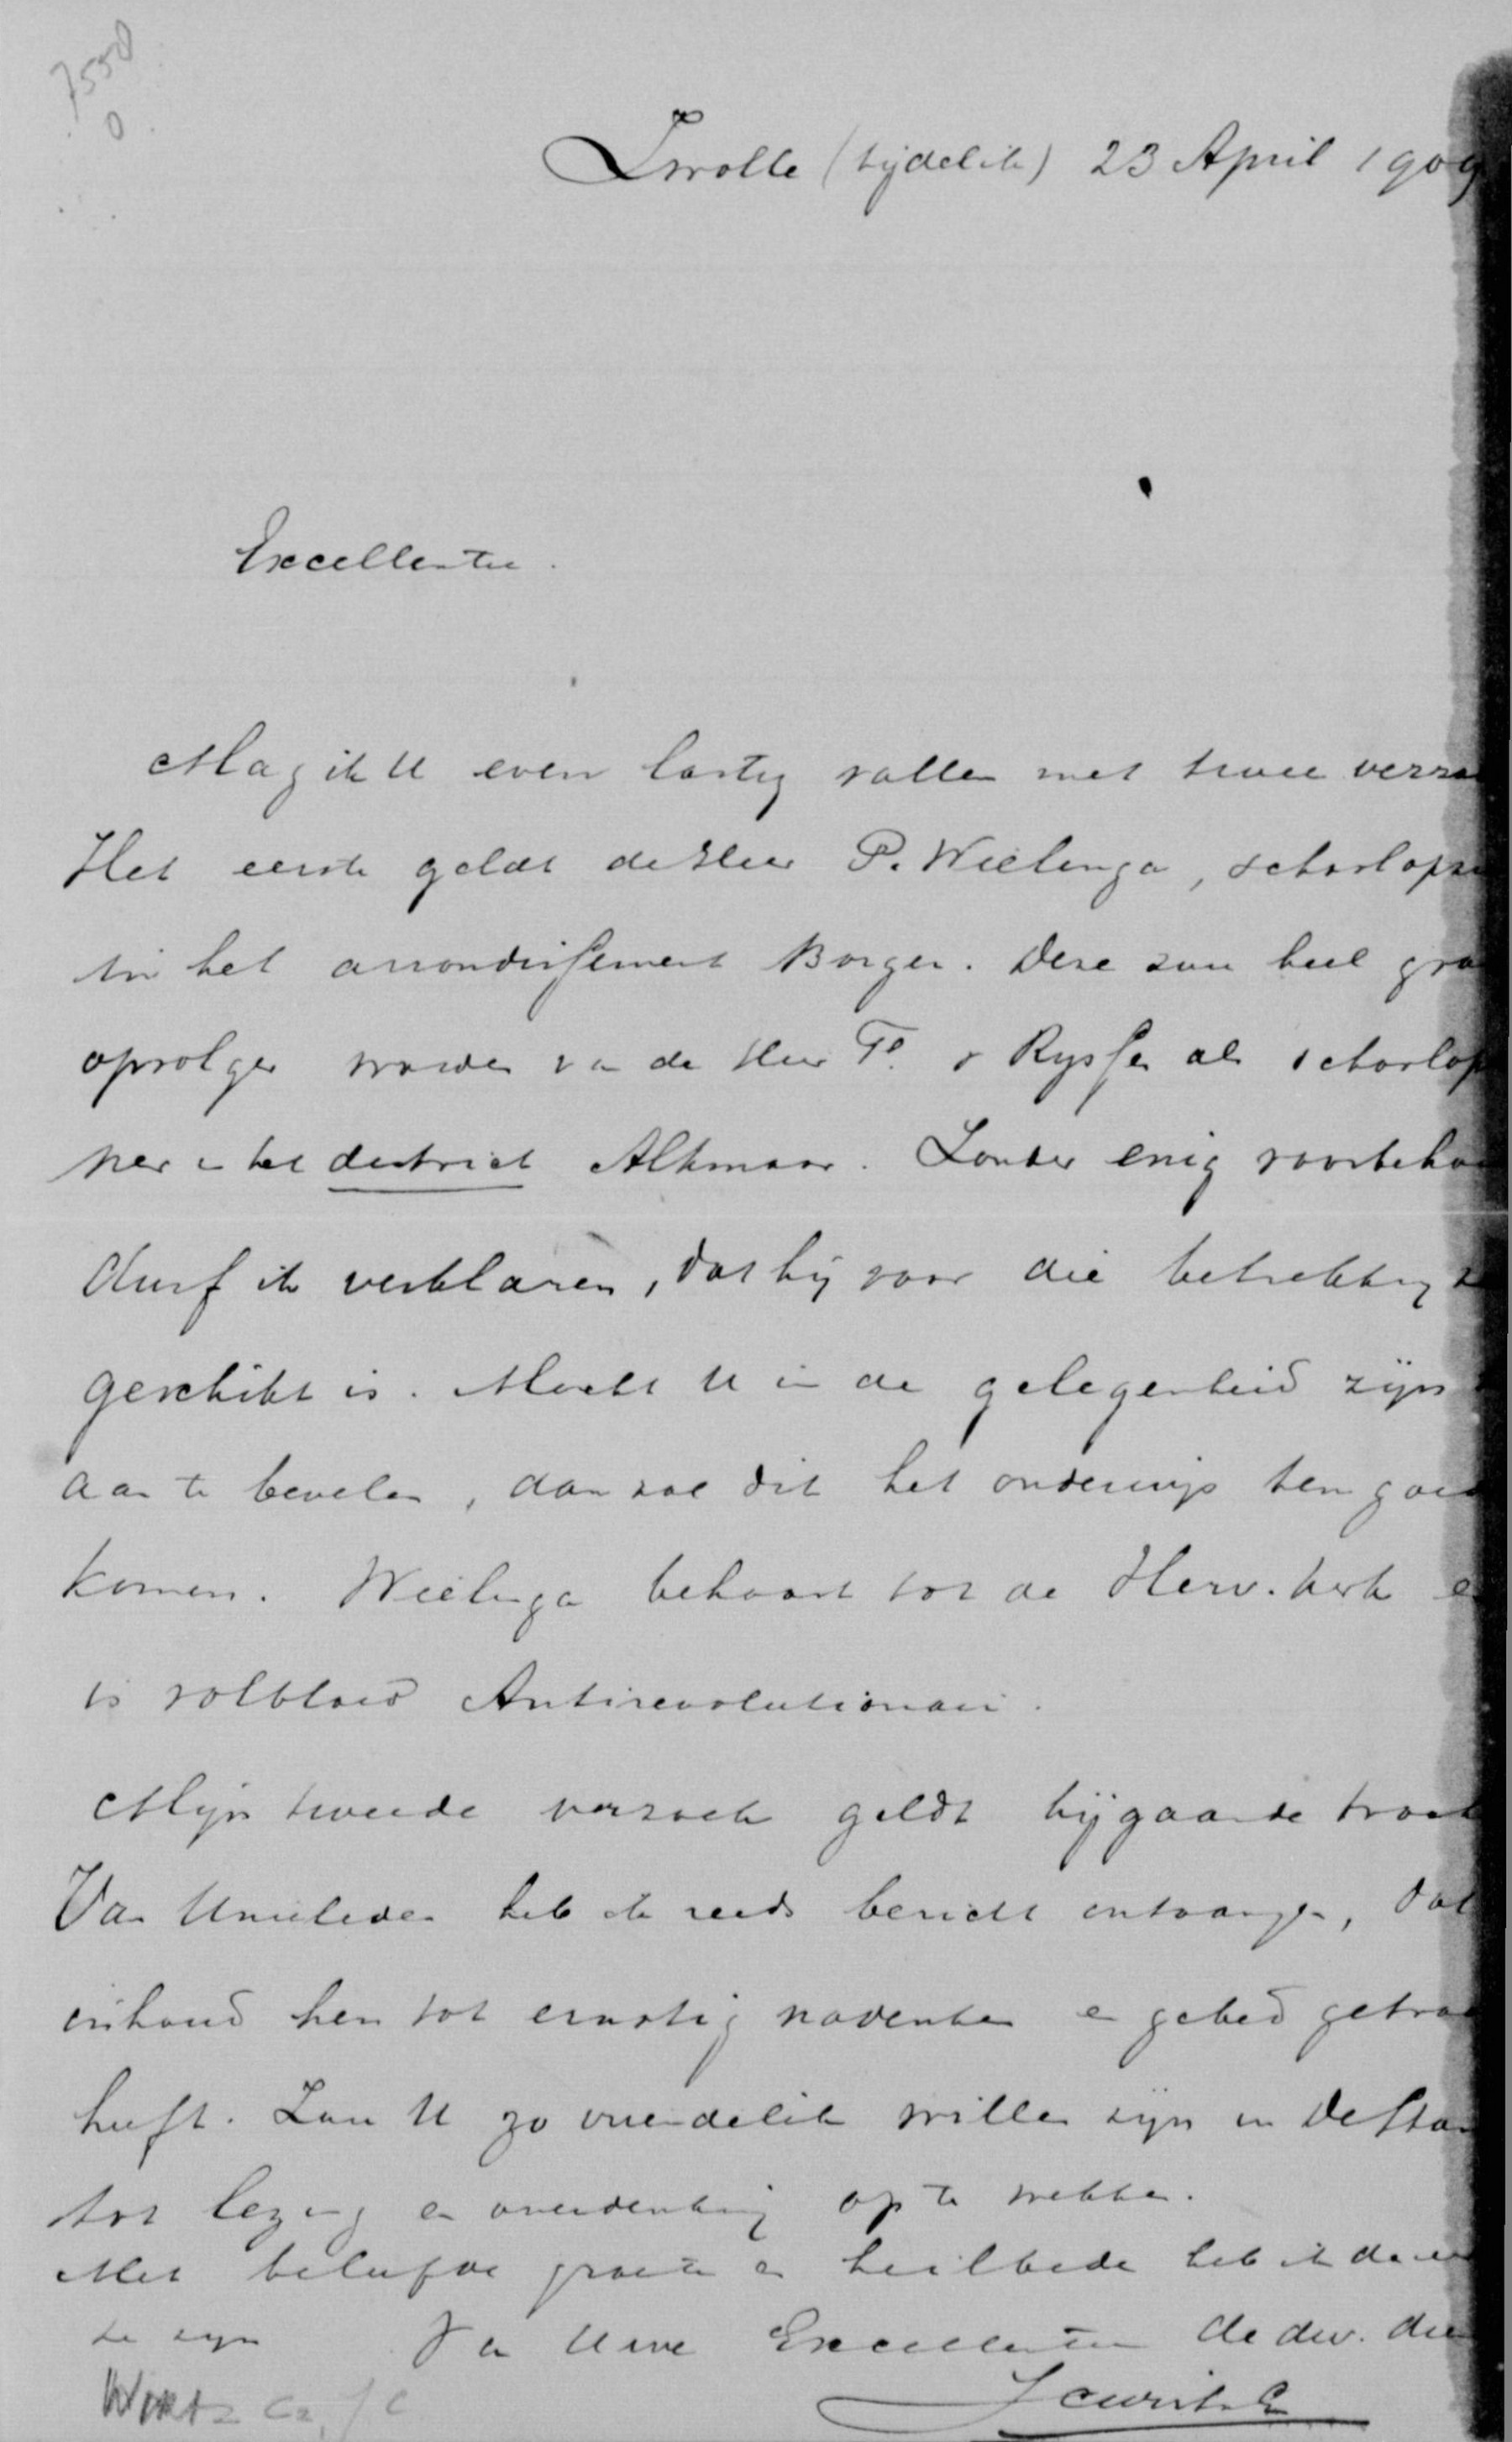 7550
0
Zwolle (tijdelik) 23 April 1909
Excellentie.
Mag ik U even lastig vallen met twee verzoe
Het eerste geldt de Heer P. Wielenga, schoolopzi
in het arrondissement Borger. Deze zou heel graa
opvolger worden van de Heer v Ryssen als schoolop
ner in het district Alkmaar. Zonder enig voorbehou
durf ik verklaren, dat hij voor die betrekking
geschikt is. Mocht U in de gelegenheid zijn
aan te bevelen, dan zal dit het onderwijs ten goed
komen. Wielenga behoort tot de Herv. kerk e
is volbloed Antirevolutionair.
Mijn tweede verzoek geldt bijgaande
Van heb ik reeds bericht ontvangen, dat
inhoud hen tot ernstig nadenken en gebed
heeft. Zou U zo vriendelik willen zijn in De Stan
tot lezing en overdenking op te wekken.
Met beleefde groete en heilbede heb ik de
te zijn Van Uwe Excellentie de dw. die